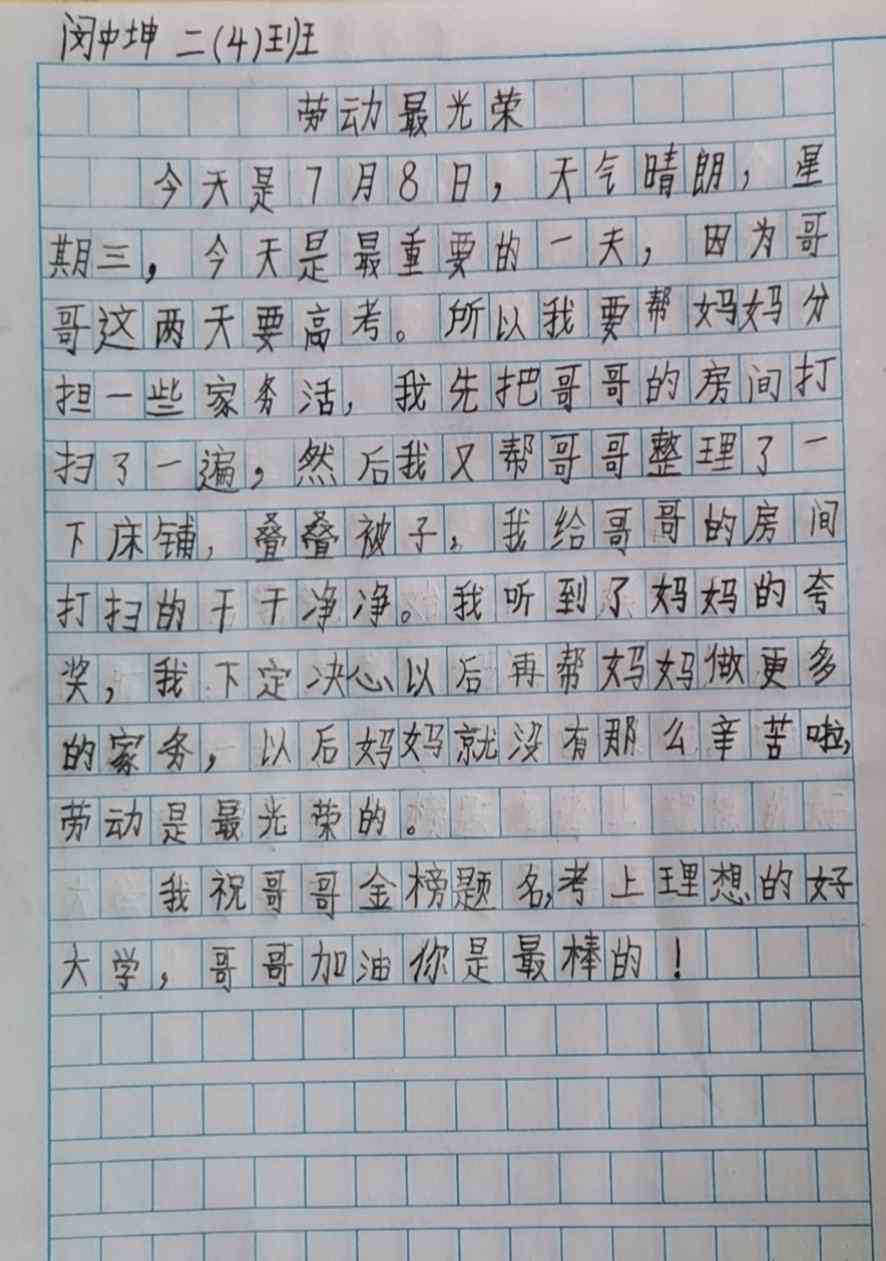 闵中坤 二(4)班
劳动最光荣
今天是7月8日，天气晴朗，星
期三，今天是最重要的一天，因为哥
哥这两天要高考。所以我要帮妈妈分
担一些家务活，我先把哥哥的房间打
扫了一遍，然后我又帮哥哥整理了一
下床铺，叠叠被子，我给哥哥的房间
打扫的干干净净。我听到了妈妈的夸
奖，我下定决心以后再帮妈妈做更多
的家务，以后妈妈就没有那么辛苦啦，
劳动是最光荣的。
我祝哥哥金榜题名,考上理想的好
大学，哥哥加油你是最棒的！